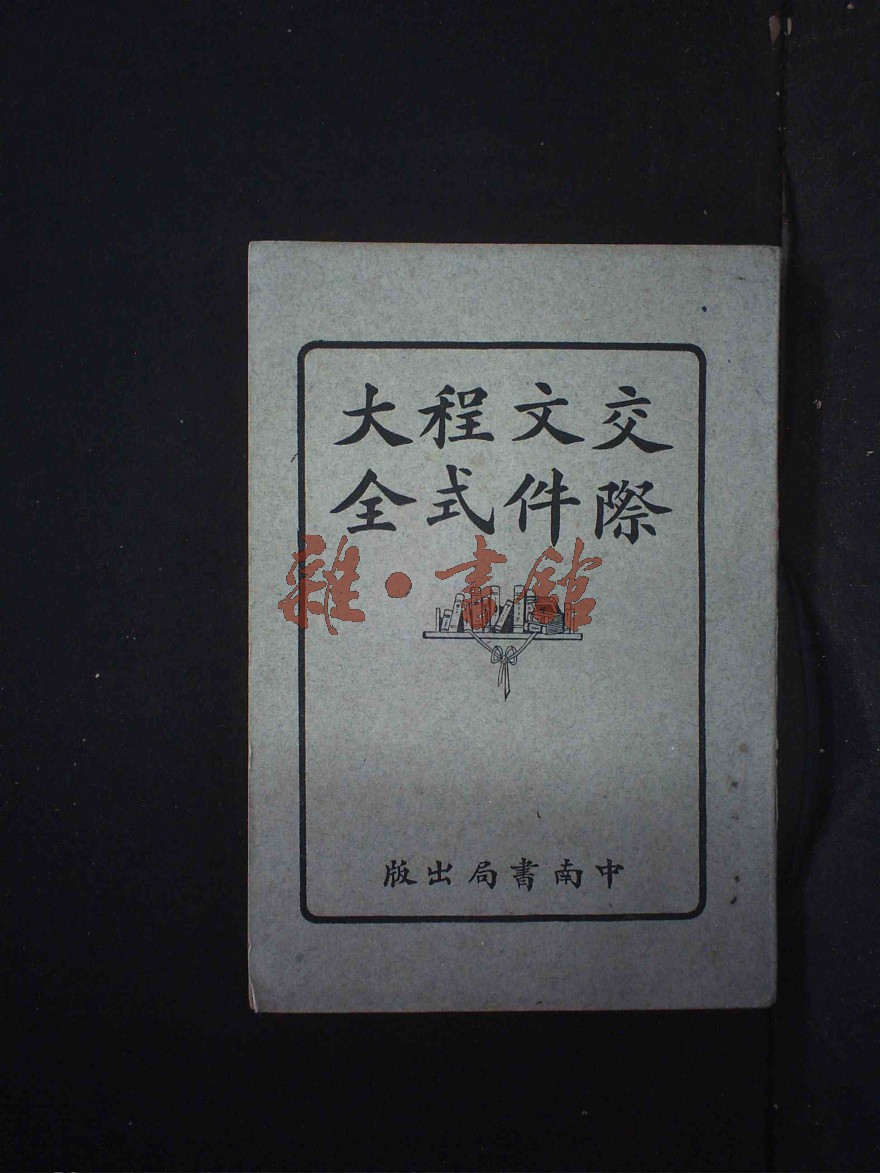 交際
文件
程式
大全
雜·書館
中南書局出版